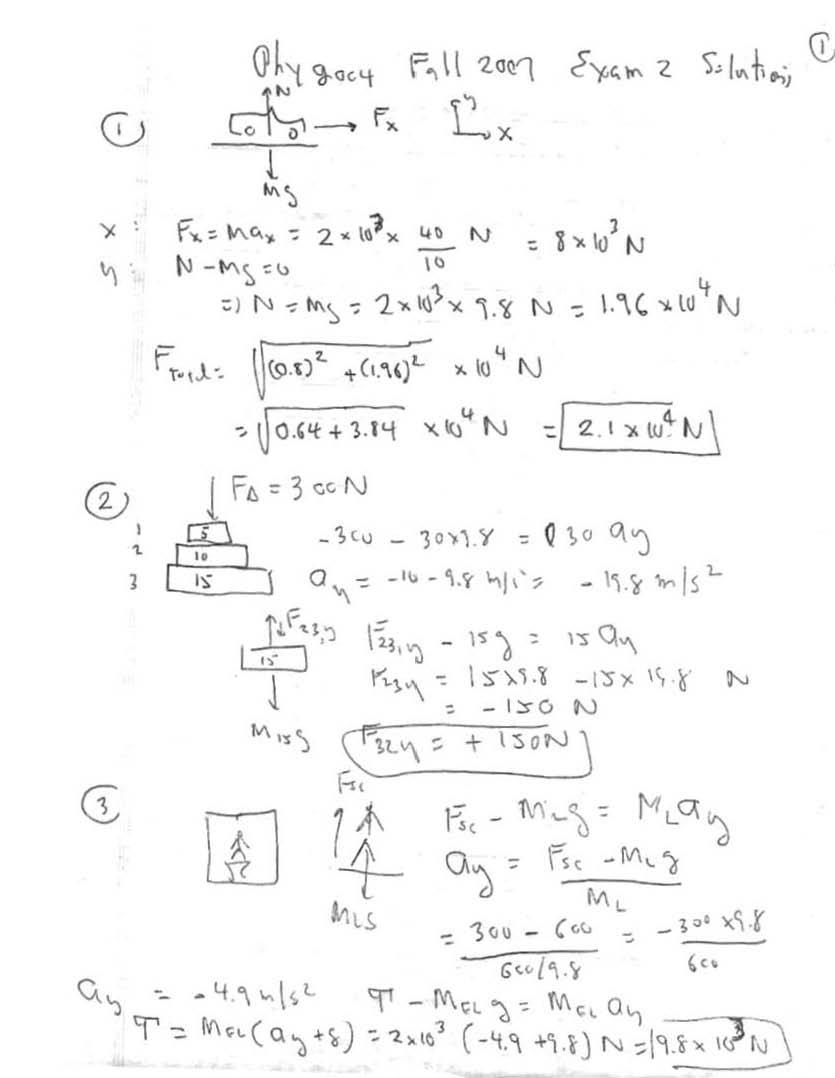 ①
Phy 9004 Fall 2009 Exam 2 Solutions
① N Fx y x
Mg
x: Fx = max = 2 × 10³ × 40/10 N = 8 × 10³ N
y: N - Mg = 0
=) N = Mg = 2 × 10³ × 9.8 N = 1.96 × 10⁴ N
F Total = √((0.8)² + (1.96)²) × 10⁴ N
= √(0.64 + 3.84) × 10⁴ N = 2.1 × 10⁴ N
② FΔ = 300 N
1 5
2 10
3 15
-300 - 30×9.8 = 30 ay
ay = -10 - 9.8 m/s² = -19.8 m/s²
F23,y 15 M15g
F23,y - 15g = 15 ay
F23y = 15×9.8 - 15×19.8 N
= -150 N
F32y = +150N
③ Fsc MLg
Fsc - MLg = MLay
ay = (Fsc - MLg)/ML
= (300 - 600)/(600/9.8) = (-300 × 9.8)/600
ay = -4.9 m/s² T - MELg = MEL ay
T = MEL(ay+g) = 2×10³ (-4.9 +9.8) N = 9.8 × 10³ N